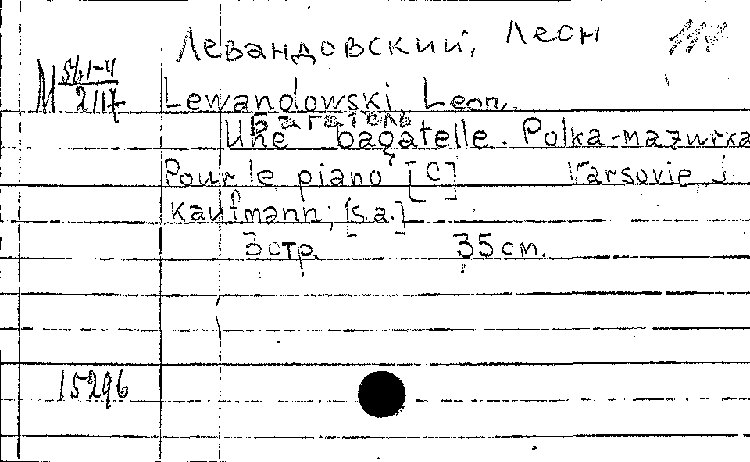 Левандовский, Леон
М 561-4
2117
Lewandowski, Leon.
Багатель
Une bagatelle. Polka-mazurka
Pour le piano [C] Varsovie, J.
Kaufmann, [s.a.]
3 стр. 35 cm.
15296